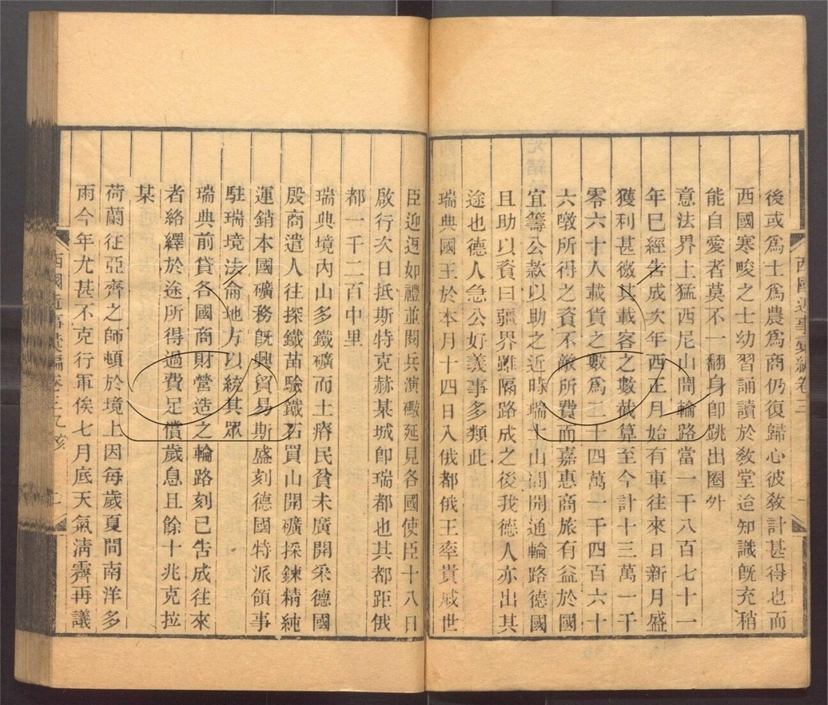 後或爲士爲農爲商仍復歸心彼教計甚得也而
西國寒畯之士幼習誦讀於教堂迨知識旣充稍
能自愛者莫不一翻身卽跳出圈外
意法界上猛西尼山開輪路當一千八百七十一
年已經告成次年酉正月始有車往來日新月盛
獲利甚微其載容之數截算至今計十三萬一千
零六十人載貨之數爲二十四萬一千四百六十
六噸所得之資不敵所費而嘉惠商旅有益於國
宜籌公款以助之近時瑞士山澗開通輪路德國
且助以資曰疆界雖隔路成之後我德人亦出其
途也德人急公好義事多類此
瑞典國王於本月十四日入俄都俄王率貴戚世
西國近事彙編卷三
臣迎迓如禮並閱兵演礮延見各國使臣十八日
啟行次日抵斯特克赫某城卽瑞都也其都距俄
都一千二百中里
瑞典境內山多鐵礦而土瘠民貧未廣開采德國
殷商遣人往探鐵苗驗鐵石買山開礦採鍊精純
運銷本國礦務旣興貿易斯盛刻德國特派領事
駐瑞境法侖地方以統其眾
瑞典前貸各國商財營造之輪路刻已告成往來
者絡繹於途所得過費足償歲息且餘十兆克拉
某
荷蘭征亞齊之師頓於境上因每歲夏間南洋多
雨今年尤甚不克行軍俟七月底天氣淸霽再議
西國近事彙編卷三